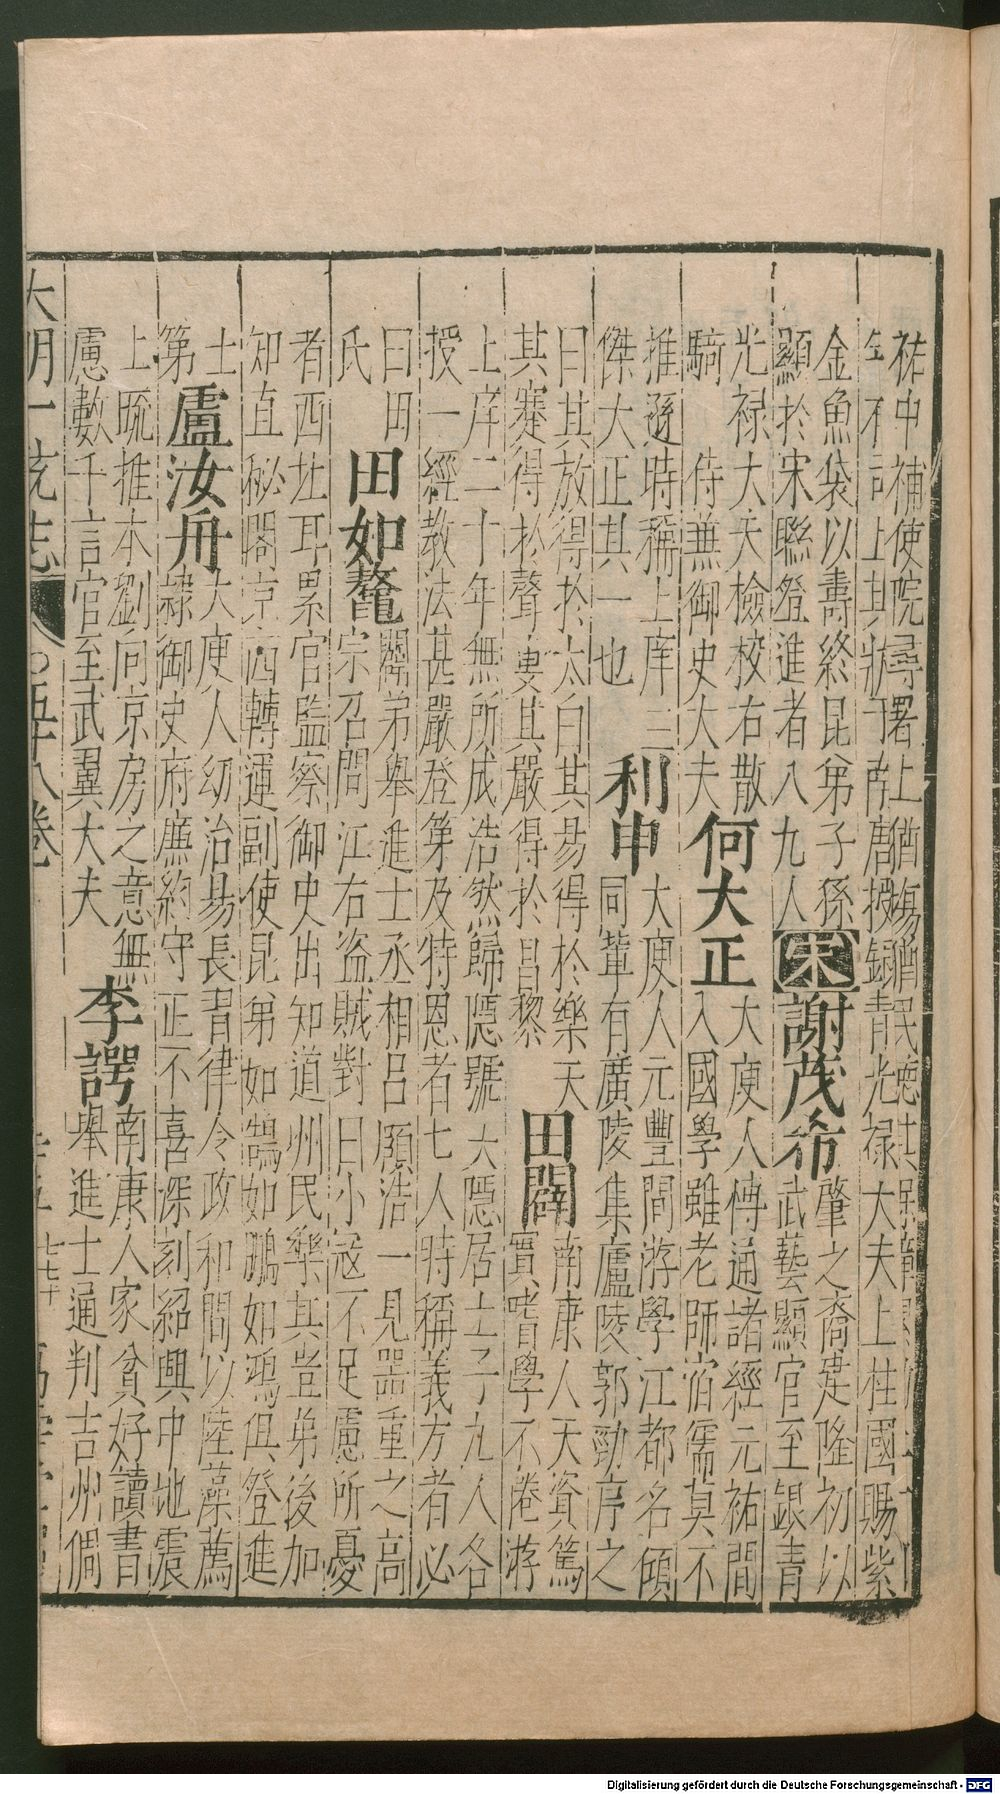 祐中補使院尋署上猶場
年有司上其狀于南唐授銀青光祿大夫上柱國賜紫
金魚袋以壽終昆弟子孫
顯於宋聯登進者八九人 宋 謝茂希 肇之裔建隆初以
武藝顯官至銀青
光祿大夫檢校右散
騎 侍兼御史大夫 何大正 大庾人博通諸經元祐間
入國學雖老師宿儒莫不
推遜時稱上庠三
傑大正其一也 利申 大庾人元豐間游學江都名傾
同輩有廣陵集廬陵郭勁序之
曰其放得於太白其易得於樂天
其蹇得於聱叟其嚴得於昌黎 田闢 南康人天資篤
實嗜學不倦游
上庠二十年無所成浩然歸隱號大隱居士子九人各
授一經教法甚嚴登第及特恩者七人時稱義方者必
曰田
氏 田如鼇 闢弟舉進士丞相呂頤浩一見器重之高
宗召問江右盜賊對曰小寇不足慮所憂
者西北耳累官監察御史出知道州民樂其豈弟後加
知直秘閣京西轉運副使昆弟如鵠如鵬如鴻俱登進
士
第 盧汝舟 大庾人幼治易長習律令政和間以陸藻薦
隷御史府廉約守正不喜深刻紹興中地震
上疏推本劉向京房之意無
慮數千言官至武翼大夫 李諤 南康人家貧好讀書
舉進士通判吉州倜
大明一統志 五十八卷
Digitalisierung gefördert durch die Deutsche Forschungsgemeinschaft - DFG